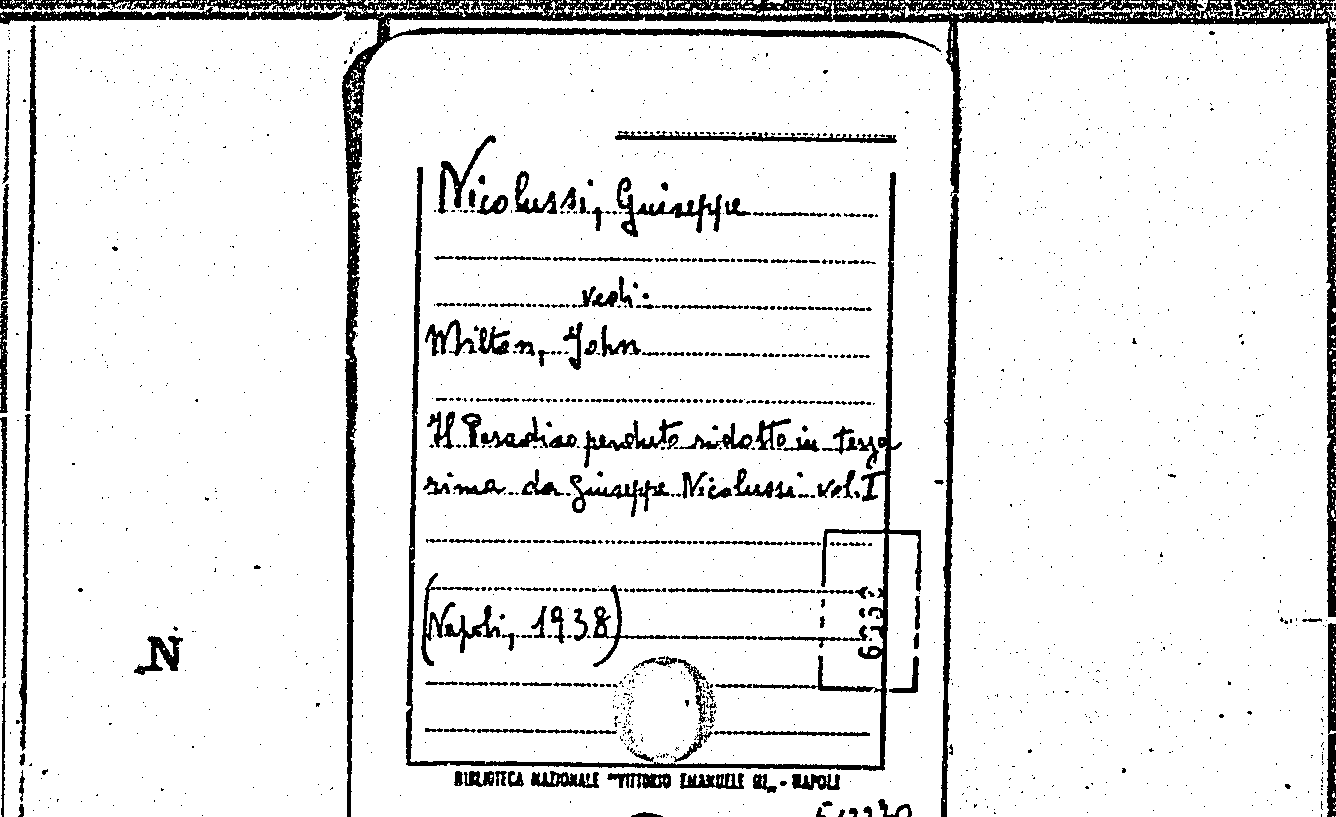 Nicolussi, Giuseppe
vedi:
Milton, John
Il Paradiso perduto ridotto in terza
rima da Giuseppe Nicolussi vol. I
(Napoli, 1938)
N
BIBLIOTECA NAZIONALE "VITTORIO EMANUELE III„ - NAPOLI